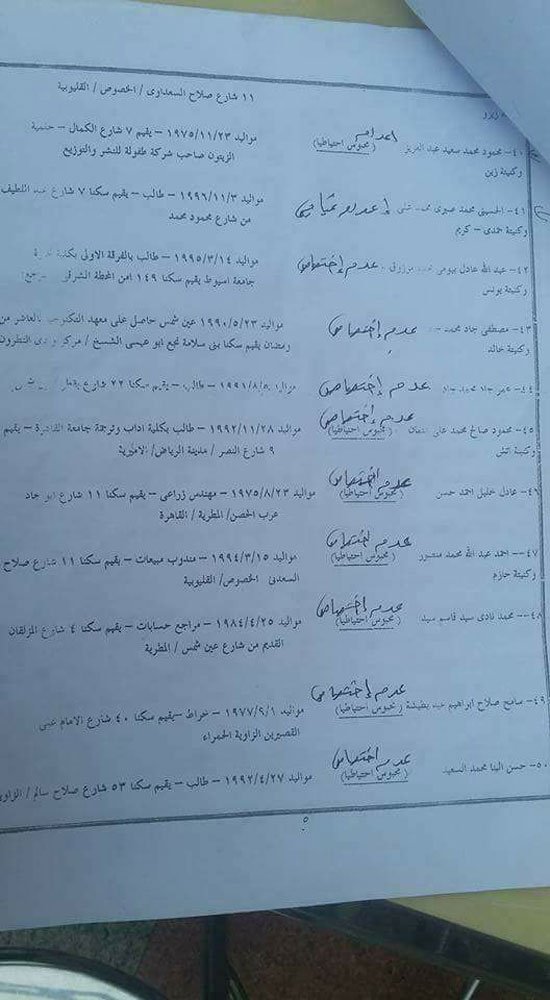 ١١ شارع صلاح السعداوى / الخصوص / القليوبية
٤٠- محمود محمد سعيد عبد العزيز
وكنيتة زين
اعدام
(محبوس احتياطيا)
مواليد ١٩٧٥/١١/٢٣ – يقيم ٧ شارع الكمال – حلمية
الزيتون صاحب شركة طفولة للنشر والتوزيع
٤١- الحسينى محمد صبرى محمد
وكنيتة حمدى – كريم
إعدام غيابي
مواليد ١٩٩٦/١١/٣ – طالب – يقيم سكنا ٧ شارع عبد اللطيف
من شارع محمود محمد
٤٢- عبد الله عادل بيومى مرزوق
وكنيتة يونس
عدم إختصاص
مواليد ١٩٩٥/٣/١٤ – طالب بالفرقة الاولى بكلية
جامعة اسيوط يقيم سكنا ١٤٩
٤٣- مصطفى جاد محمد
وكنيتة خالد
عدم إختصاص
مواليد ١٩٩٠/٥/٢٣ عين شمس حاصل على معهد بالعاشر من
رمضان يقيم سكنا بنى سلامة نجع ابو عيسى / مركز وادى النطرون
٤٤- عمر جاد محمد جاد
عدم إختصاص
– طالب – يقيم سكنا ٢٢ شارع
٤٥- محمود صالح محمد على
وكنيتة اتش
عدم إختصاص
(محبوس احتياطيا)
مواليد ١٩٩٢/١١/٢٨ – طالب بكلية اداب وترجمة جامعة القاهرة – يقيم
٩ شارع النصر / مدينة الرياض / الاميرية
٤٦- عادل خليل احمد حسن
عدم إختصاص
(محبوس احتياطيا)
مواليد ١٩٧٥/٨/٢٣ – مهندس زراعى – يقيم سكنا ١١ شارع ابو جاد
عرب الحصن / المطرية / القاهرة
٤٧- احمد عبد الله محمد منصور
وكنيتة حازم
عدم إختصاص
(محبوس احتياطيا)
مواليد ١٩٩٤/٣/١٥ – مندوب مبيعات – يقيم سكنا ١١ شارع صلاح
السعدنى الخصوص / القليوبية
٤٨- محمد نادى سيد قاسم سيد
عدم إختصاص
(محبوس احتياطيا)
مواليد ١٩٨٤/٤/٢٥ – مراجع حسابات – يقيم سكنا ٤ شارع المزلقان
القديم من شارع عين شمس / المطرية
٤٩- سامح صلاح ابراهيم
عدم إختصاص
(محبوس احتياطيا)
مواليد ١٩٧٧/٩/١ – خراط – يقيم سكنا ٤٠ شارع الامام على
القصيرين الزاوية الحمراء
٥٠- حسن البنا محمد السعيد
عدم إختصاص
(محبوس احتياطيا)
مواليد ١٩٩٢/٤/٢٧ – طالب – يقيم سكنا ٥٣ شارع صلاح سالم /
٥